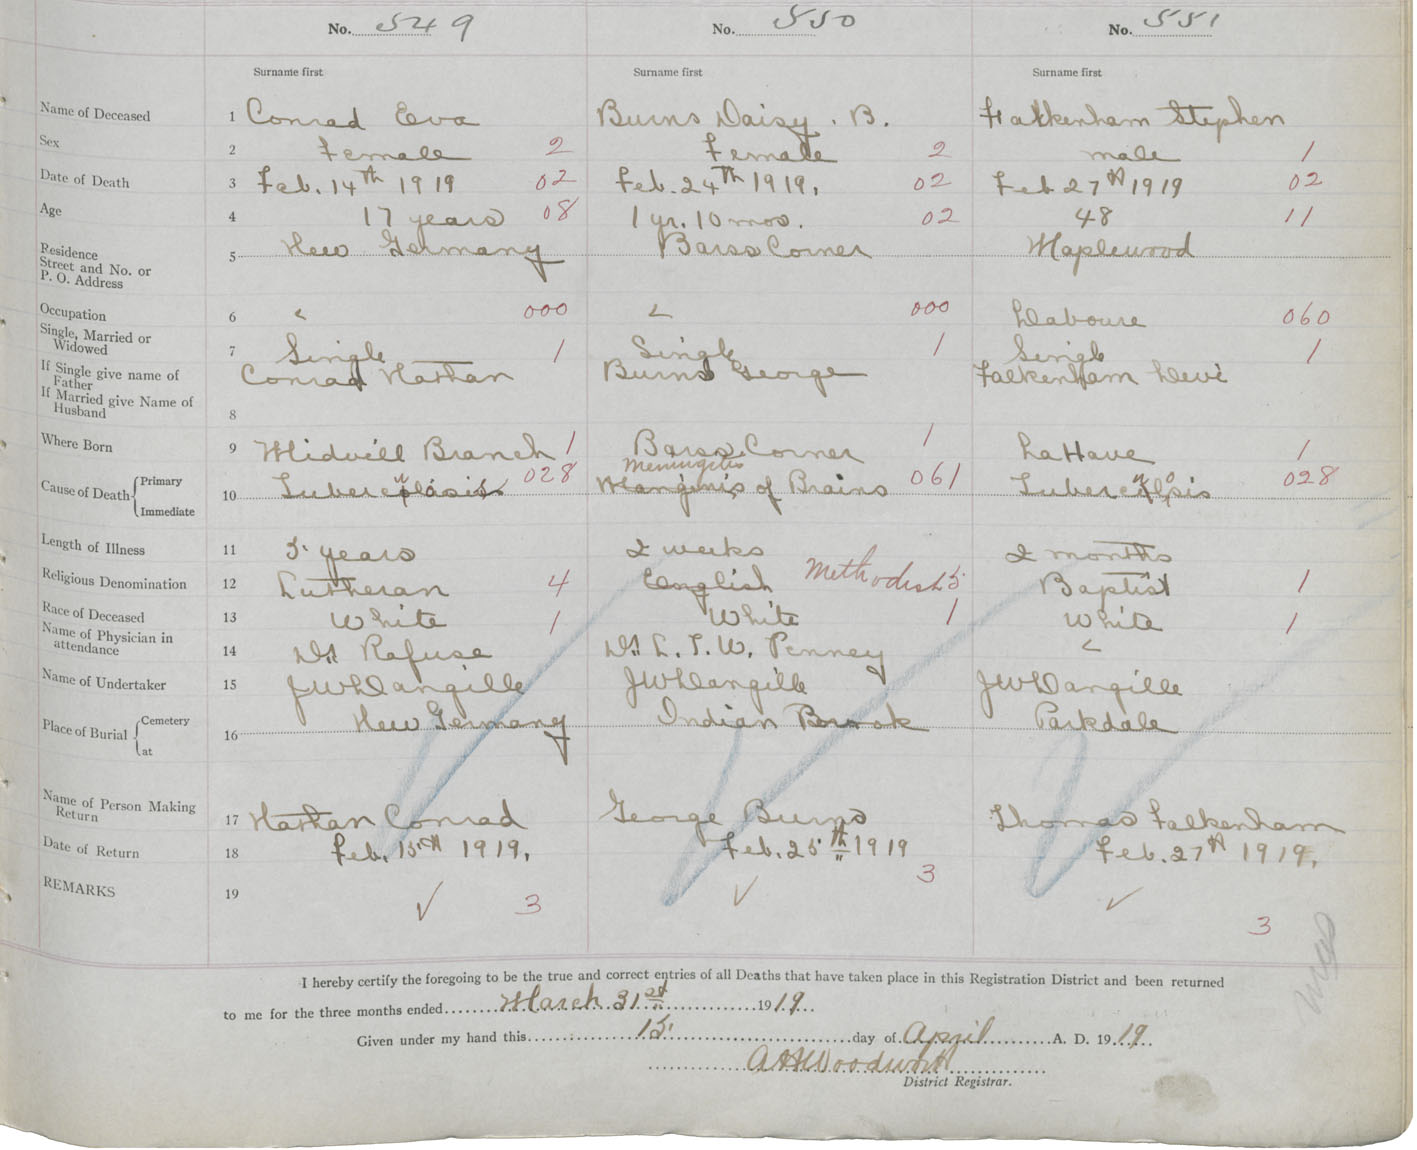 No. 549 No. 550 No. 551
Surname first Surname first Surname first
Name of Deceased 1 Conrad Eva Burns Daisy . B. Falkenham Stephen
Sex 2 Female 2 Female 2 male 1
Date of Death 3 Feb. 14th 1919 02 Feb. 24th 1919, 02 Feb 27th 1919 02
Age 4 17 years 08 1 yr. 10 mos. 02 48 11
Residence
Street and No. or
P. O. Address 5 New Germany Barss Corner Maplewood
Occupation 6 000 000 Laboure 060
Single, Married or
Widowed 7 Single 1 Single 1 Single 1
If Single give name of
Father Conrad Nathan Burns George Falkenham Levi
If Married give Name of
Husband 8
Where Born 9 Midvill Branch 1 Barss Corner 1 LaHave 1
Cause of Death Primary
Immediate 10 Tuberculosis 028 Meningitis of Brains 061 Tuberculosis 028
Length of Illness 11 5 years 2 weeks 2 months
Religious Denomination 12 Lutheran 4 English Methodist 5 Baptist 1
Race of Deceased 13 White 1 White 1 White 1
Name of Physician in
attendance 14 Dr. Rafuse Dr. L. T. W. Penney
Name of Undertaker 15 JWLangille JWLangille JWLangille
Place of Burial Cemetery
at 16 New Germany Indian Brook Parkdale
Name of Person Making
Return 17 Nathan Conrad George Burns Thomas Falkenham
Date of Return 18 Feb. 15th 1919, Feb. 25th 1919 Feb. 27th 1919,
REMARKS 19 ✓ 3 ✓ 3 ✓ 3
I hereby certify the foregoing to be the true and correct entries of all Deaths that have taken place in this Registration District and been returned
to me for the three months ended March 31st 1919
Given under my hand this 15 day of April A. D. 1919
District Registrar.